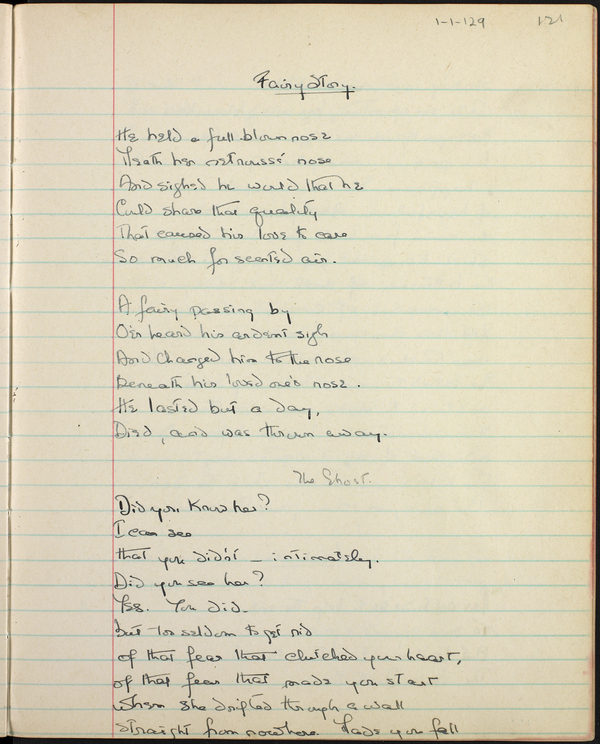 1-1-129 121
Fairy Story.
He held a full blown rose
'Neath her retroussé nose
And sighed he would that he
Could share that quality
That caused his love to care
So much for scented air.
A fairy passing by
O'er heard his ardent sigh
And changed him to the rose
Beneath his loved one's nose.
He lasted but a day,
Died, and was thrown away.
The Ghost.
Did you know her?
I can see
that you didn't — intimately.
Did you see her?
Yes. You did.
but too seldom to get rid
of that fear that clutched your heart,
of that fear that made you start
when she drifted through a wall
straight from nowhere. Made you fall